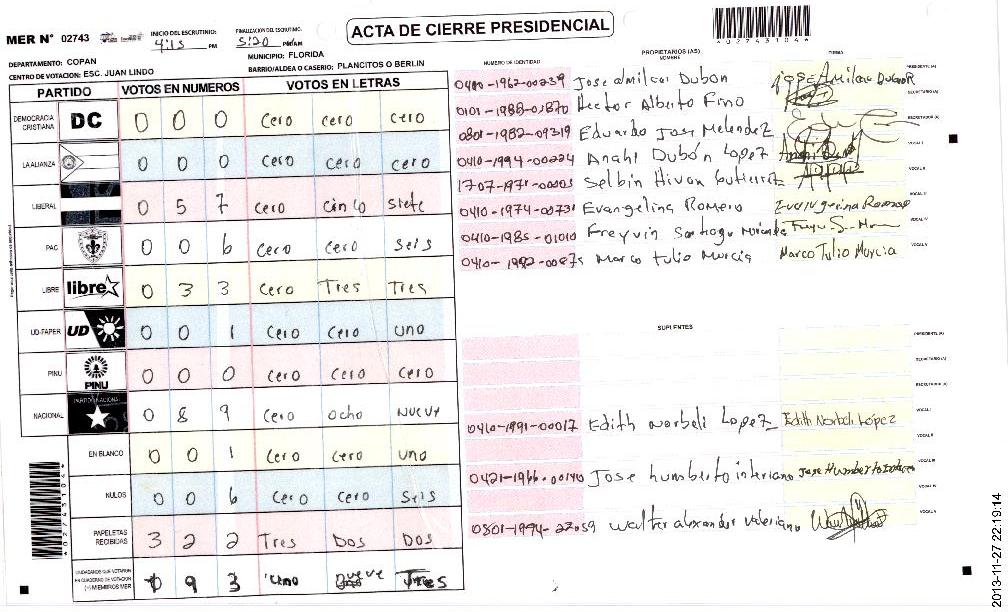 ACTA DE CIERRE PRESIDENCIAL
MER N° 02743
INICIO DEL ESCRUTINIO: 4:15 PM
FINALIZACION DEL ESCRUTINIO: 5:20 PM/AM
DEPARTAMENTO: COPAN
MUNICIPIO: FLORIDA
CENTRO DE VOTACION: ESC. JUAN LINDO
BARRIO/ALDEA O CASERIO: PLANCITOS O BERLIN
PARTIDO VOTOS EN NUMEROS VOTOS EN LETRAS
DEMOCRACIA CRISTIANA DC 0 0 0 cero cero cero
LA ALIANZA 0 0 0 cero cero cero
LIBERAL 0 5 7 cero cinco siete
PAC 0 0 6 cero cero seis
LIBRE libre 0 3 3 cero Tres Tres
UD-FAPER UD 0 0 1 cero cero uno
PINU PINU 0 0 0 cero cero cero
NACIONAL PARTIDO NACIONAL 0 8 9 cero ocho nueve
EN BLANCO 0 0 1 cero cero uno
NULOS 0 0 6 cero cero seis
PAPELETAS RECIBIDAS 3 2 2 Tres Dos Dos
CIUDADANOS QUE VOTARON EN CUADERNO DE VOTACION (+) MIEMBROS MER 1 9 3 uno nueve Tres
A02743104A
PROPIETARIOS (AS)
NUMERO DE IDENTIDAD NOMBRE FIRMA
0410-1962-00239 Jose amilcar Dubon Jose Amilcar Dubon R PRESIDENTE (A)
Hector Alberto Pino SECRETARIO (A)
0801-1982-09319 Eduardo Jose Melendez ESCRUTADOR (A)
0410-1994-00224 Anahi Dubón Lopez VOCAL I
1707-1971-00003 Selbin Hivan Gutierrez VOCAL II
0410-1974-00731 Evangelina Romero Evangelina Romero VOCAL III
0410-1985-01010 Freyvin Santiago VOCAL IV
Marco Tulio Murcia Marco Tulio Murcia VOCAL V
SUPLENTES
PRESIDENTE (A)
SECRETARIO (A)
ESCRUTADOR (A)
0410-1991-00017 Edith Norbeli Lopez Edith Norbeli López VOCAL I
VOCAL II
0421-1966-00140 Jose humberto interiano Jose Humberto VOCAL III
VOCAL IV
0801-1994-22059 Walter alexander Valeriano VOCAL V
A02743104A
2013-11-27 22:19:14